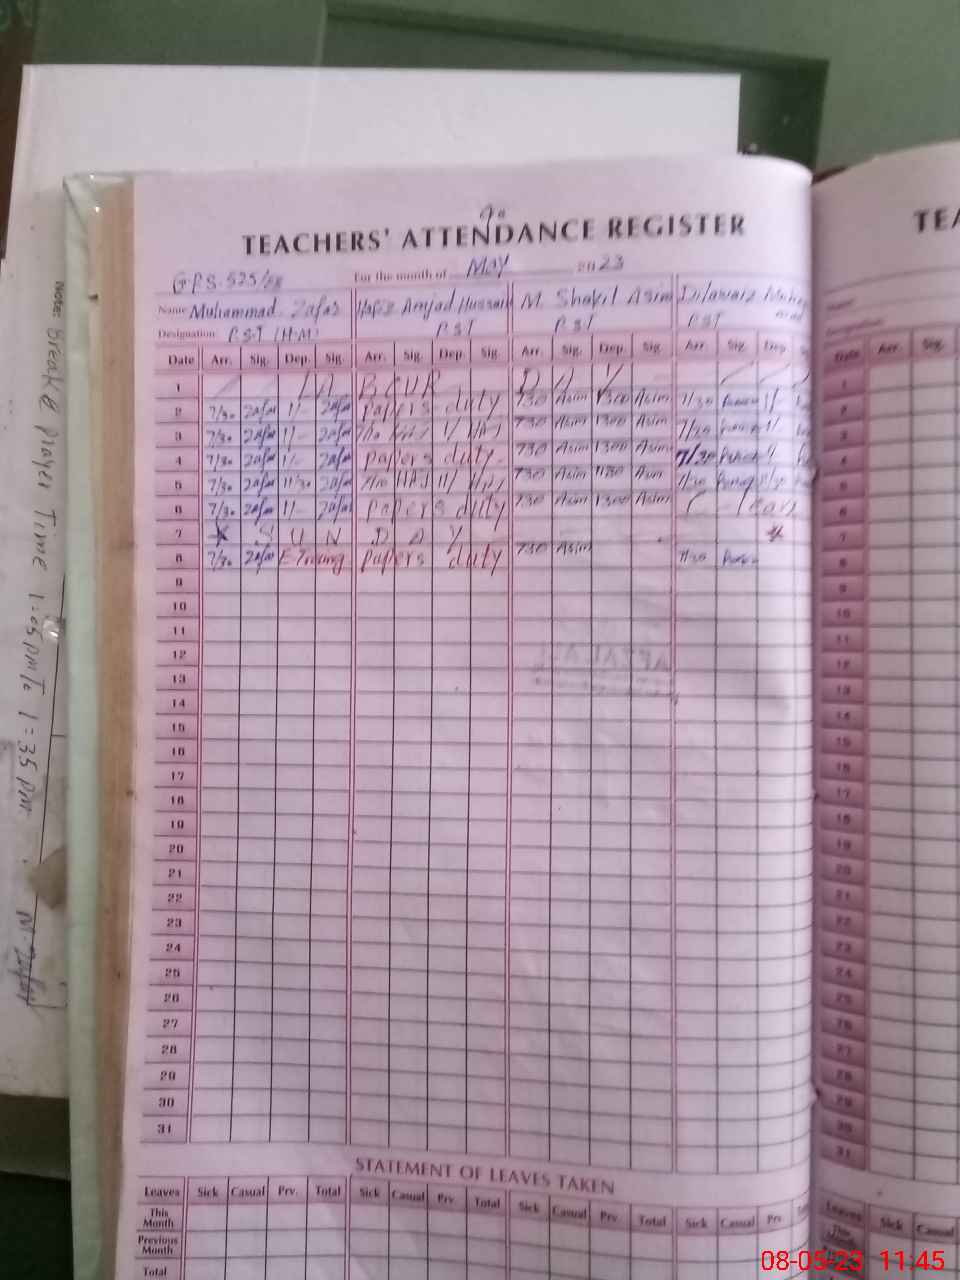 TEACHERS' ATTENDANCE REGISTER
For the month of May 2023
Name Muhammad Zafar Hafiz Amjad Hussain M. Shakil Asim Dilawaiz
Designation P.S.T (H.M) P.ST P.ST P.ST
Date Arr. Sig. Dep. Sig. Arr. Sig. Dep. Sig. Arr. Sig. Dep. Sig. Arr. Sig. Dep.
1 DAY
2 7/30 Zafar 11/- Zafar Papers duty 730 Asim 1300 Asim 7/30
3 7/30 Zafar 11/- Zafar 730 Asim 1300 Asim 7/30
4 7/30 Zafar 11/- Zafar Papers duty. 730 Asim 1300 Asim 7/30
5 7/30 Zafar 11/30 Zafar 730 Asim 1130 Asim 7/30
6 7/30 Zafar 11/- Zafar Papers duty 730 Asim 1300 Asim C- leav
7 * S U N D A Y *
8 7/30 Zafar Papers duty 730 Asim 7/30
9
10
11
12
13
14
15
16
17
18
19
20
21
22
23
24
25
26
27
28
29
30
31
STATEMENT OF LEAVES TAKEN
Leaves Sick Casual Prv. Total Sick Casual Prv. Total Sick Casual Prv. Total Sick Casual Prv.
This Month
Previous Month
Total
TEA
Date Arr. Sig.
1
2
3
4
5
6
7
8
9
10
11
12
13
14
15
16
17
18
19
20
21
22
23
24
25
26
27
28
29
30
31
Leaves Sick Casual
This
Note: Break & prayer Time 1:05 pm To 1=35 pm.
M. Zafar
08-05-23 11:45